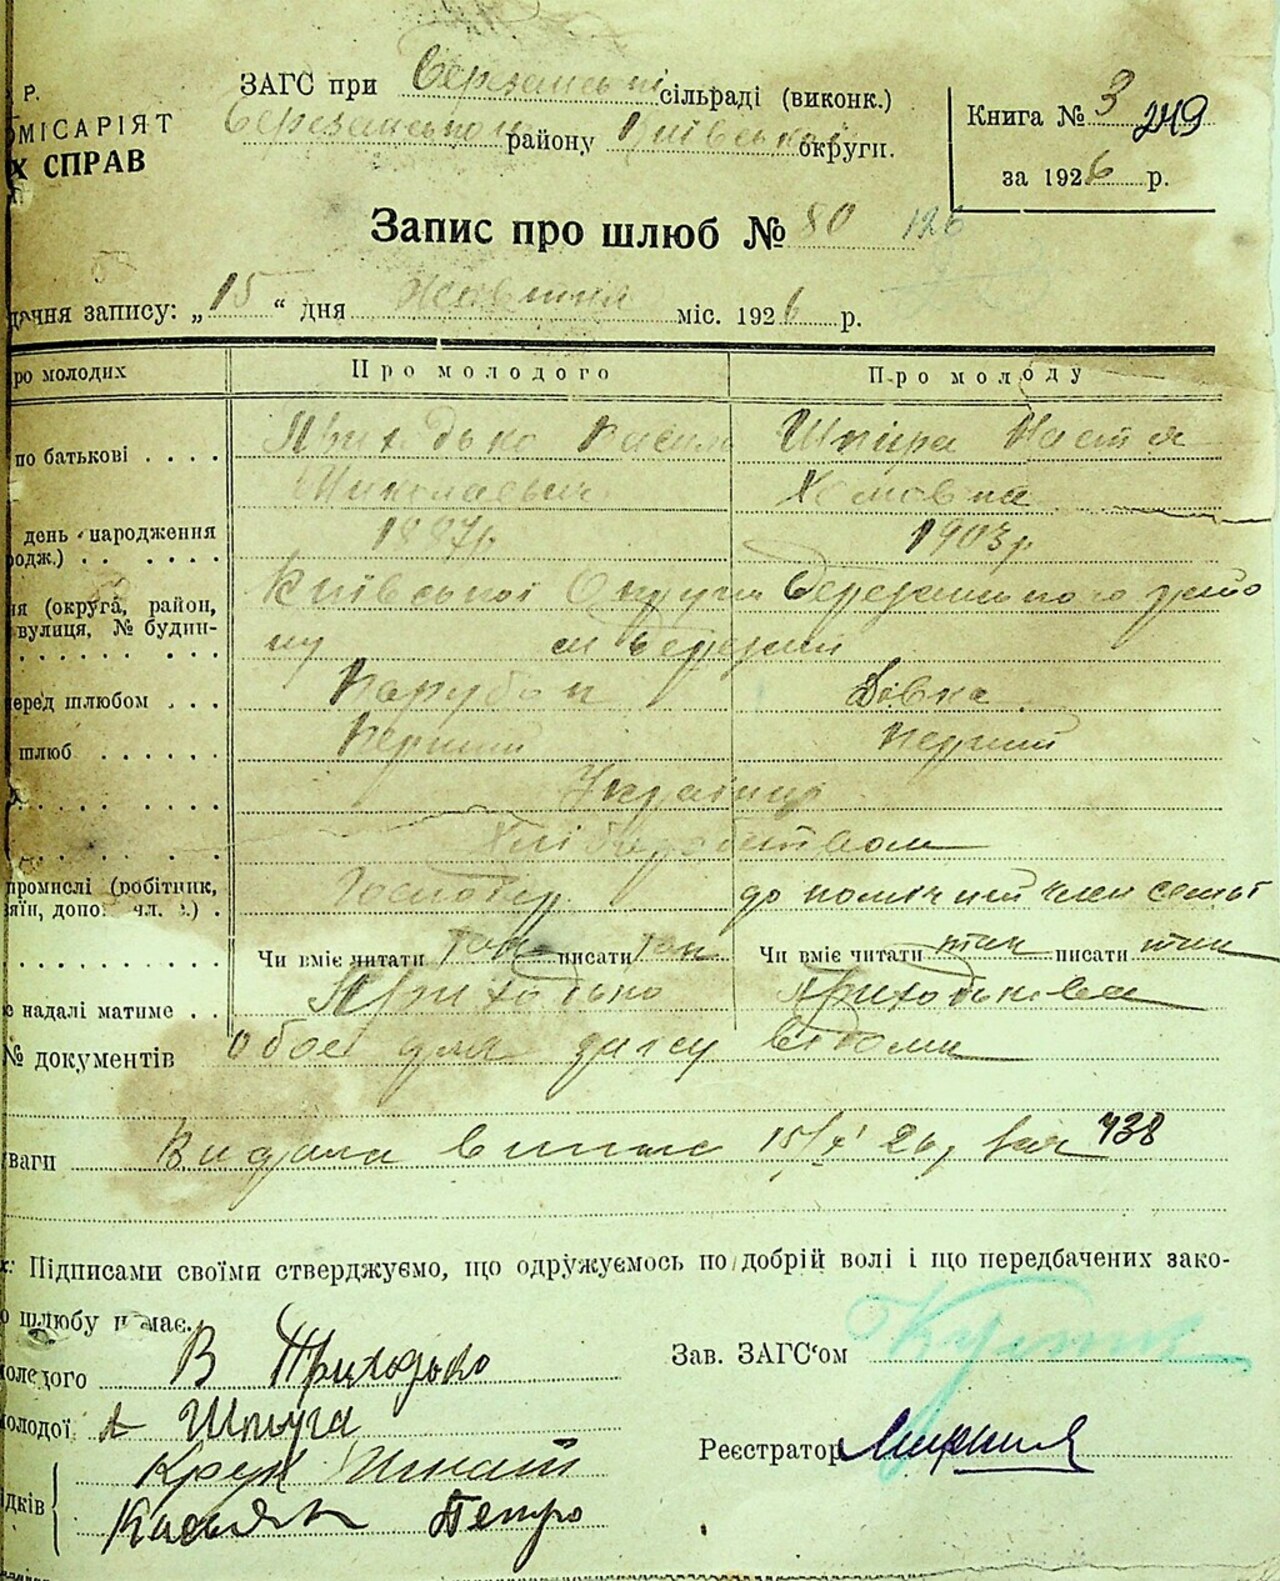 Р.
ЗАГС при Березанській сільраді (виконк.)
МІСАРІЯТ
Березанського району Київської округи.
Х СПРАВ
Книга № 3 249
за 1926 р.
Запис про шлюб № 80 126
дачня запису: „ 15 “ дня Жовтня міс. 1926 р.
ро молодих Про молодого Про молоду
по батькові . . . . Приходько Василь Шпира Настя
Миколаевич Хомовна
день народження 1887р 1903р
родж.) . . . . . .
Київської Округи Березанського райо
ня (округа, район,
вулиця, № будин-
ну м Березань
еред шлюбом . . . Парубок Дівка
шлюб . . . . . . Перший Перший
Українці
Хліборобством
промислі (робітник, Господар до помічний член семьї
яїн, допо. чл. .) .
Чи вміє читати так писати так Чи вміє читати так писати так
надалі матиме . . Приходько Приходькова
№ документів обоє для загсу відомі
ваги Видана випис 15/X 26, 438
Підписами своїми стверджуємо, що одружуємось по добрій волі і що передбачених зако-
шлюбу немає.
олодого В Приходько
Зав. ЗАГС‘ом
олодої
Реєстратор
ідків Крук Игнат
Касьян Петро